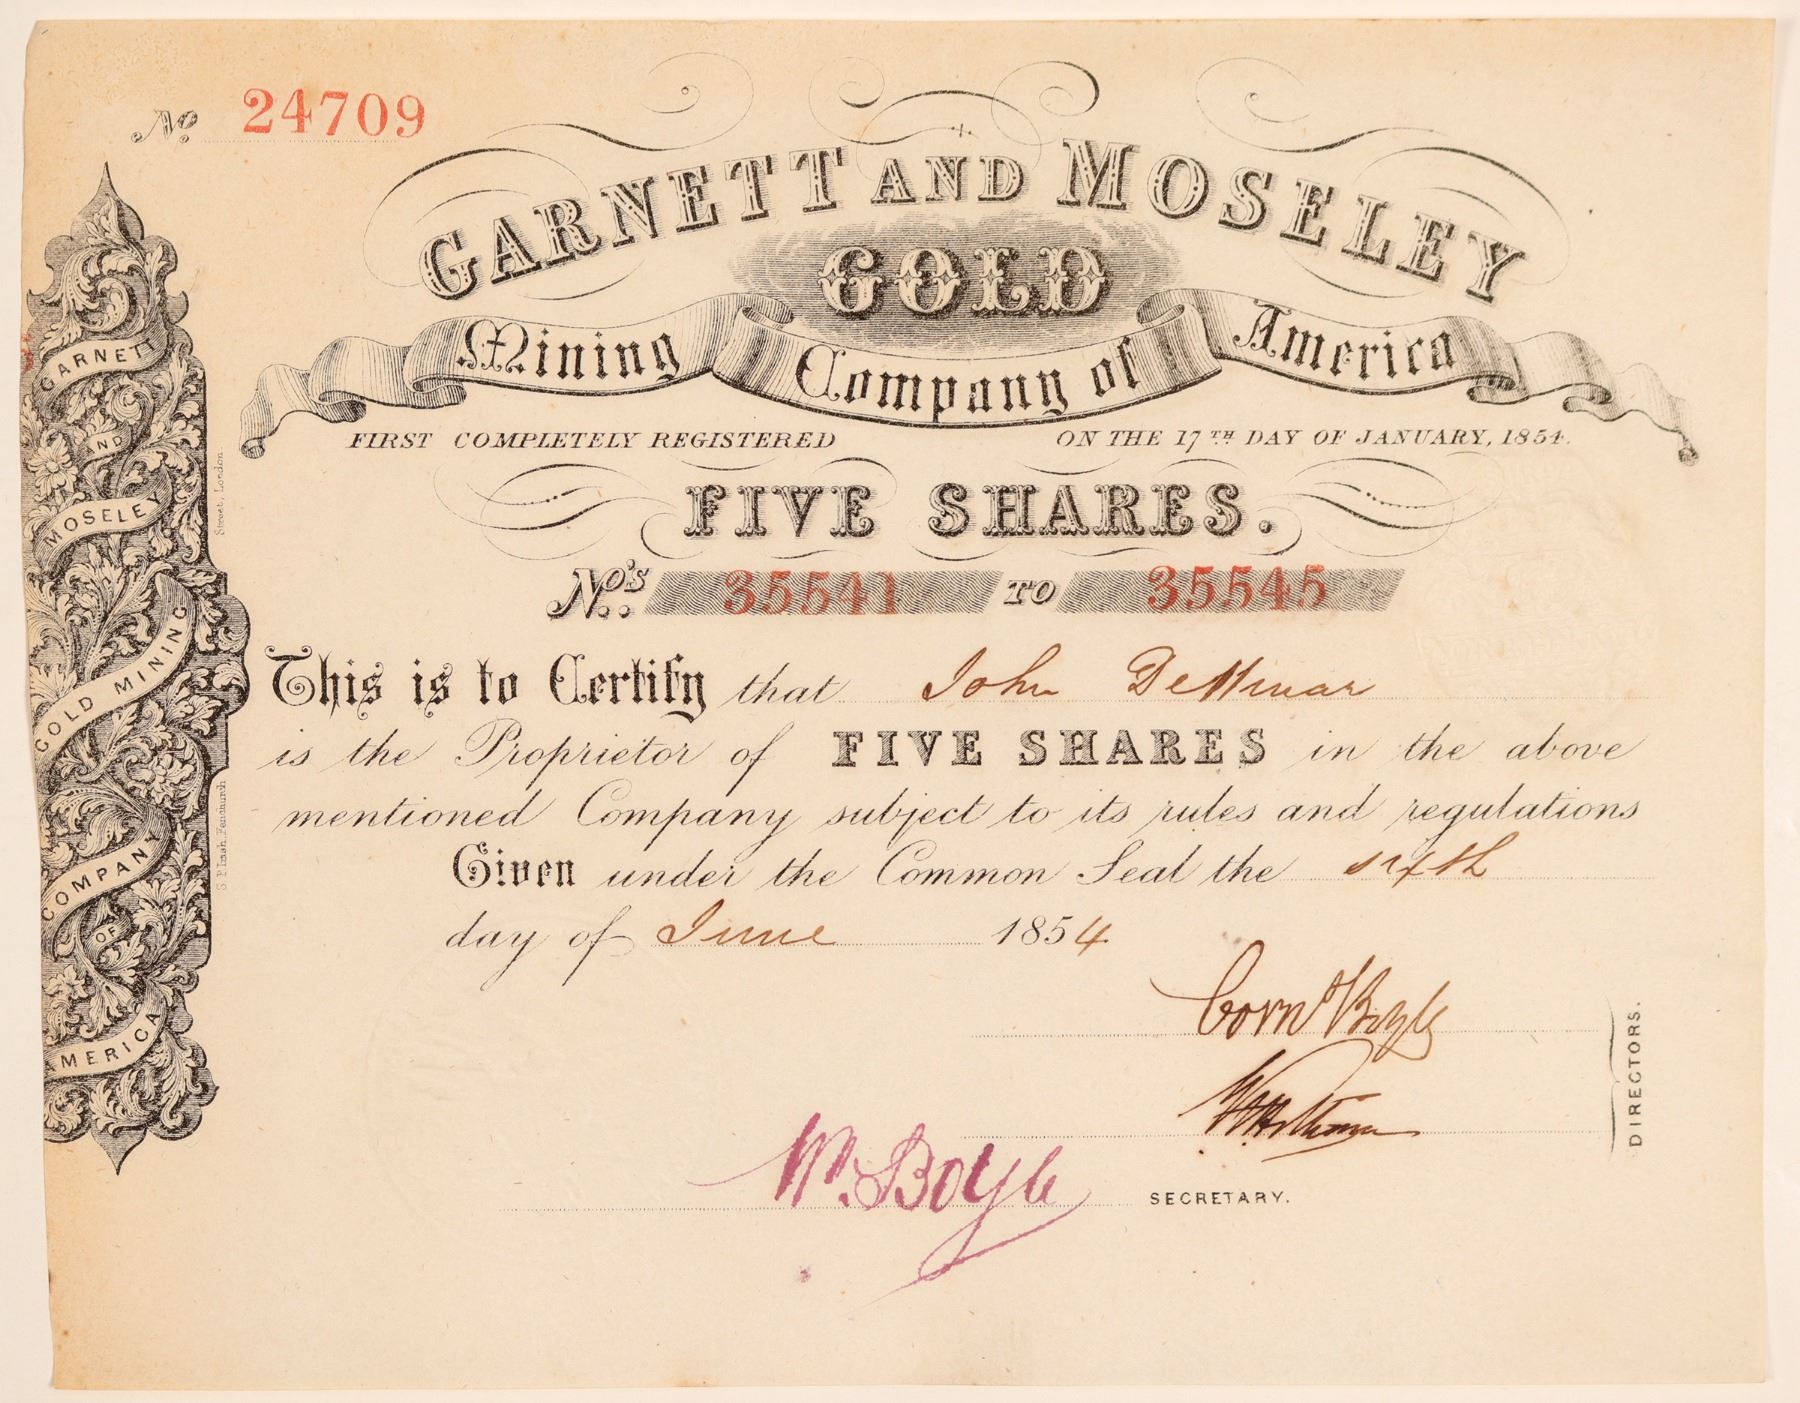 No. 24709
GARNETT AND MOSELEY
GOLD
Mining Company of America
FIRST COMPLETELY REGISTERED ON THE 17TH DAY OF JANUARY, 1854.
FIVE SHARES.
No's. 35541 TO 35545
This is to Certify that John
is the Proprietor of FIVE SHARES in the above
mentioned Company subject to its rules and regulations
Given under the Common Seal the sixth
day of June 1854
Corns Boyle
DIRECTORS.
Wm. Boyle SECRETARY.
GARNETT
AND
MOSELEY
GOLD MINING
COMPANY
OF
AMERICA
Fenchurch Street, London